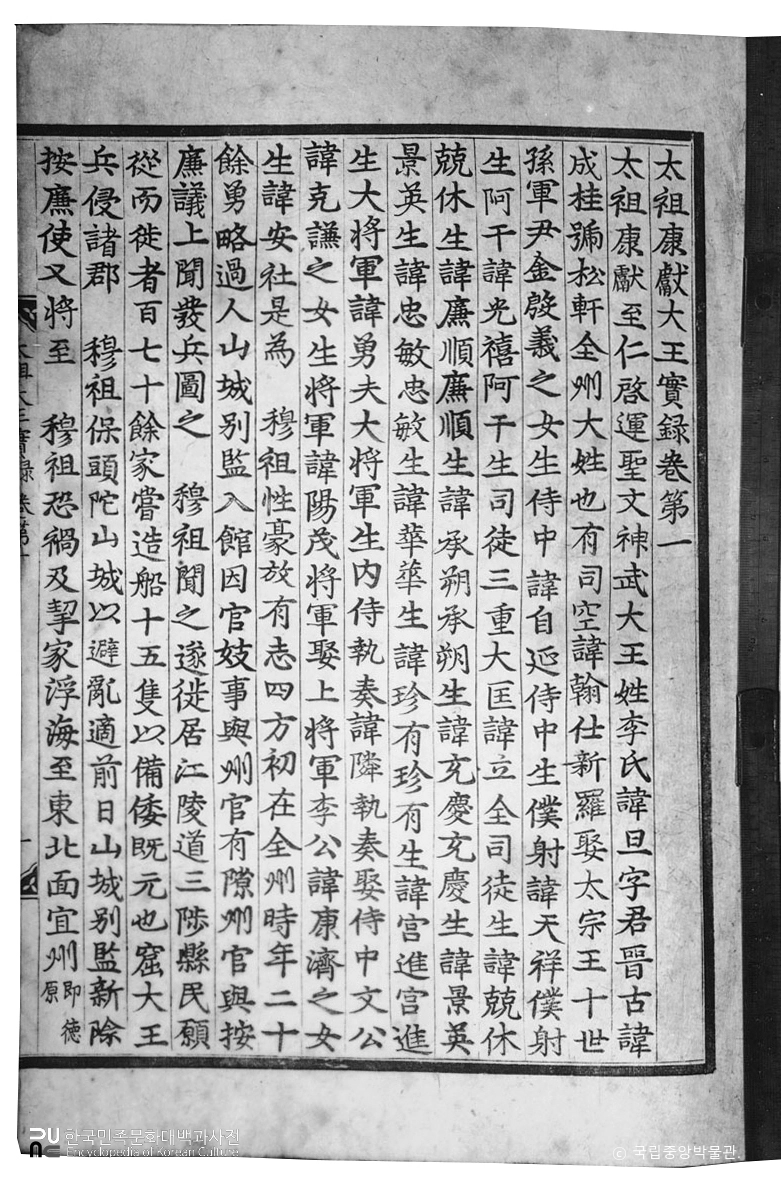 太祖康獻大王實錄卷第一
太祖康獻至仁啓運聖文神武大王姓李氏諱旦字君晉古諱
成桂號松軒全州大姓也有司空諱翰仕新羅娶太宗王十世
孫軍尹金殷義之女生侍中諱自延侍中生僕射諱天祥僕射
生阿干諱光禧阿干生司徒三重大匡諱立全司徒生諱兢休
兢休生諱廉順廉順生諱承朔承朔生諱充慶充慶生諱景英
景英生諱忠敏忠敏生諱華華生諱珍有珍有生諱宮進宮進
生大將軍諱勇夫大將軍生內侍執奏諱隣執奏娶侍中文公
諱克謙之女生將軍諱陽茂將軍娶上將軍李公諱康濟之女
生諱安社是爲 穆祖性豪放有志四方初在全州時年二十
餘勇略過人山城別監入館因官妓事與州官有隙州官與按
廉議上聞發兵圖之 穆祖聞之遂徙居江陵道三陟縣民願
從而徙者百七十餘家嘗造船十五隻以備倭旣元也窟大王
兵侵諸郡 穆祖保頭陀山城以避亂適前日山城別監新除
按廉使又將至 穆祖恐禍及挈家浮海至東北面宜州卽德原
卷第一
한국민족문화대백과사전
Encyclopedia of Korean Culture
© 국립중앙박물관